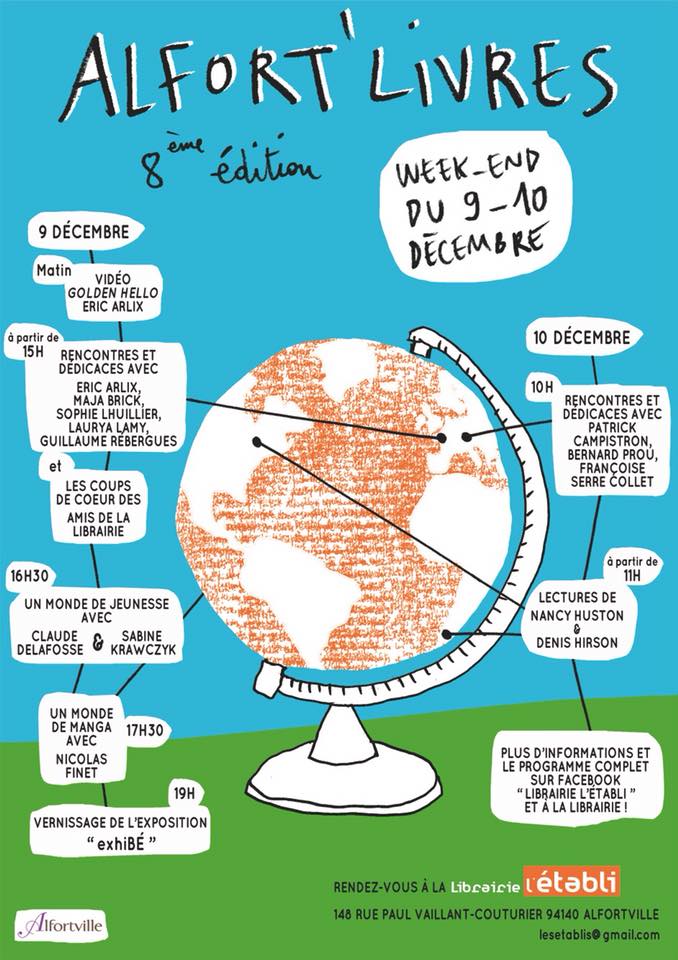 ALFORT'LIVRES
8ème édition
WEEK-END
DU 9-10
DÉCEMBRE
9 DÉCEMBRE
Matin
VIDÉO
GOLDEN HELLO
ERIC ARLIX
à partir de
15H
RENCONTRES ET
DÉDICACES AVEC
ERIC ARLIX,
MAJA BRICK,
SOPHIE LHUILLIER,
LAURYA LAMY,
GUILLAUME REBERGUES
et
LES COUPS
DE COEUR DES
AMIS DE LA
LIBRAIRIE
16H30
UN MONDE DE JEUNESSE
AVEC
CLAUDE & SABINE
DELAFOSSE KRAWCZYK
UN MONDE
DE MANGA
AVEC
NICOLAS
FINET
17H30
19H
VERNISSAGE DE L'EXPOSITION
“ exhiBÉ ”
10 DÉCEMBRE
10H
RENCONTRES ET
DÉDICACES AVEC
PATRICK
CAMPISTRON,
BERNARD PROU,
FRANÇOISE
SERRE COLLET
à partir de
11H
LECTURES DE
NANCY HUSTON
&
DENIS HIRSON
PLUS D'INFORMATIONS ET
LE PROGRAMME COMPLET
SUR FACEBOOK
“ LIBRAIRIE L'ÉTABLI ”
ET À LA LIBRAIRIE !
RENDEZ-VOUS À LA Librairie l'établi
148 RUE PAUL VAILLANT-COUTURIER 94140 ALFORTVILLE
lesetablis@gmail.com
Alfortville